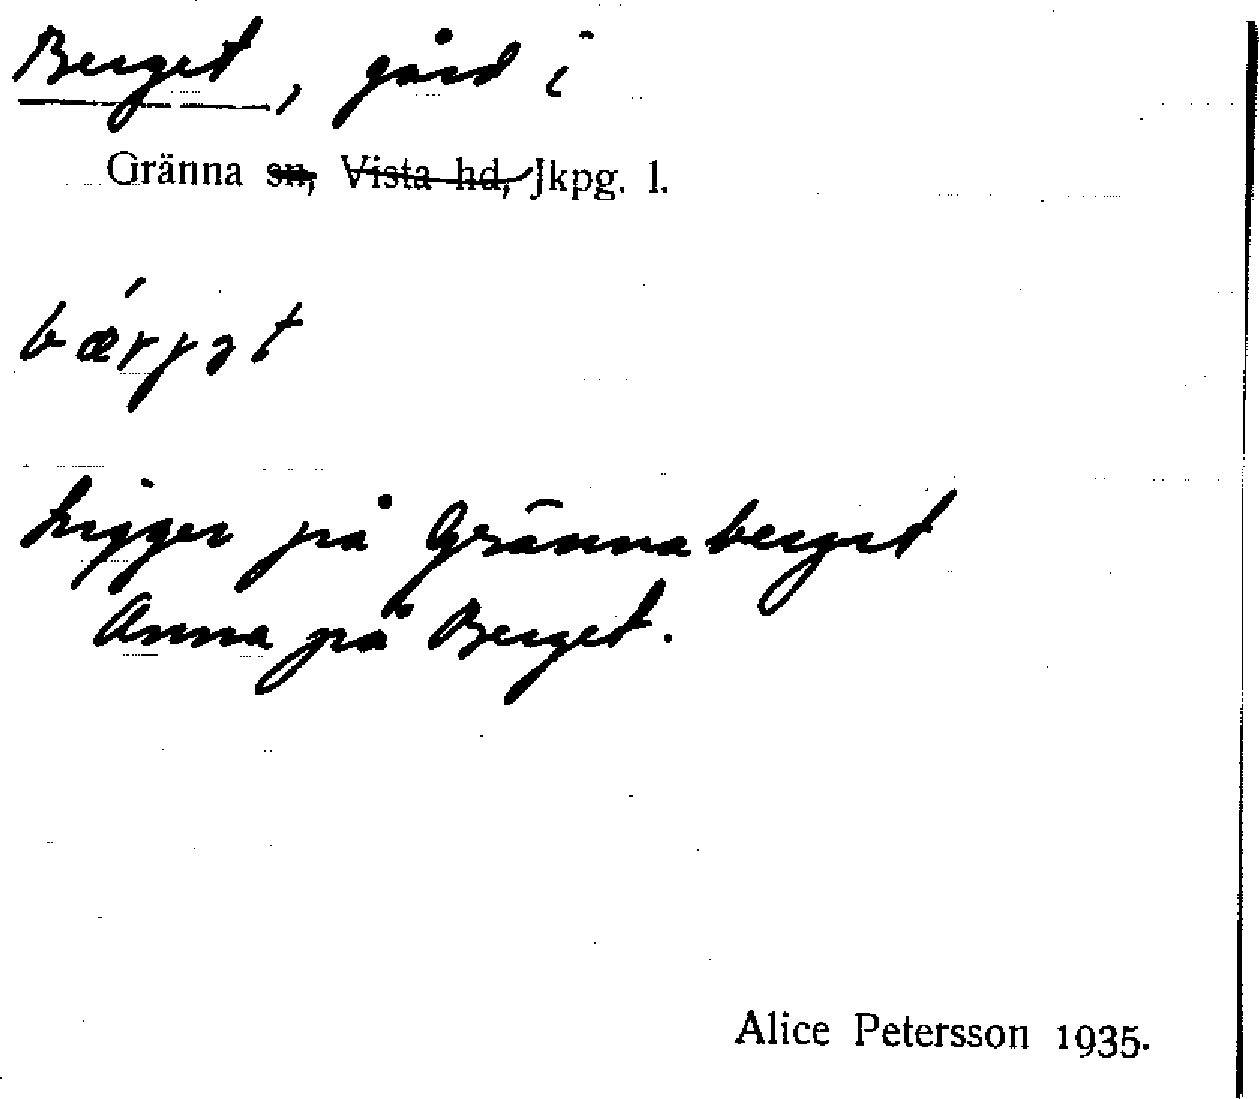 Berget, gård i
Gränna sn, Vista hd, Jkpg. l.
bǽrjət
Ligger på Grännaberget
Anna på Berget.
Alice Petersson 1935.